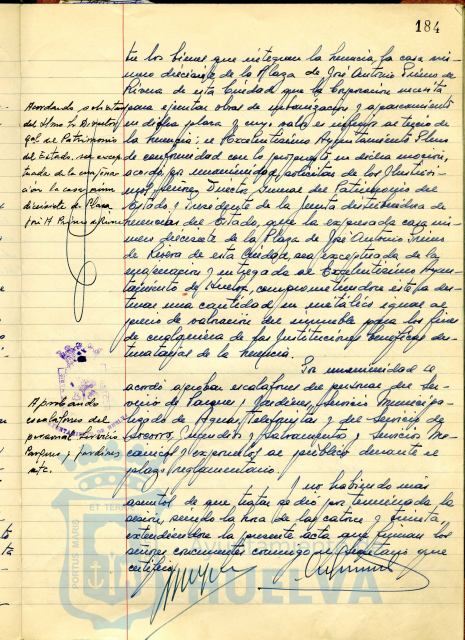 184
tre los bienes que integran la herencia, la casa nú-
mero diecisiete de la Plaza de José Antonio Primo de
Rivera de esta Ciudad que la Corporación necesita
para ejecutar obras de urbanización y aparcamiento
en dicha plaza y cuyo valor es inferior al tercio de
la herencia; el Excelentísimo Ayuntamiento Pleno
de conformidad con lo propuesto en dicha moción,
acordó por unanimidad solicitar de los Ilustrísi-
mos señores Director General del Patrimonio del
Estado y Presidente de la Junta distribuidora de
herencias del Estado, que la expresada casa nú-
mero diecisiete de la Plaza de José Antonio Primo
de Rivera de esta Ciudad, sea exceptuada de la
enajenación y entregada al Excelentísimo Ayun-
tamiento de Huelva, comprometiéndose este a des-
tinar una cantidad en metálico igual al
precio de valoración del inmueble para los fines
de cualquiera de las Instituciones benéficas des-
tinatarias de la herencia.
Por unanimidad se
acordó aprobar escalafones del personal del Ser-
vicio de Parques y Jardines, Servicio Municipa-
lizado de Aguas, telefonistas y del Servicio de
Socorro, Incendios y Salvamento y Servicios Me-
cánicos y exponerlos al público durante el
plazo reglamentario.
Y no habiendo más
asuntos de que tratar se dio por terminada la
sesión, siendo la hora de las catorce y treinta,
extendiéndose la presente acta que firman los
señores concurrentes conmigo el Secretario que
certifico.
Acordando solicitar
del Iltmo Sr. Director
gral de Patrimonio
del Estado, sea excep-
tuada de la enajena-
ción la casa número
diecisiete de Plaza
José A. Primo de Rivera
Aprobando
escalafones del
personal Servicio
Parques y Jardines
etc.
PORTUS MARIS
ET TER
Ayuntamiento
HUELVA